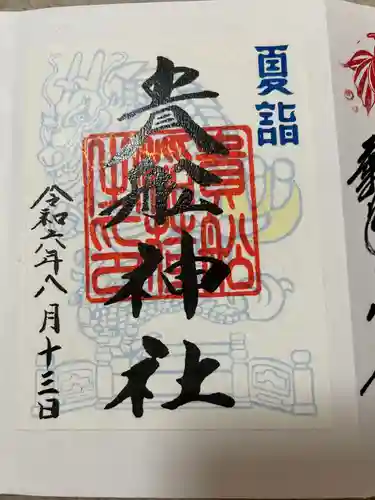 夏詣
貴船神社
令和六年八月十三日